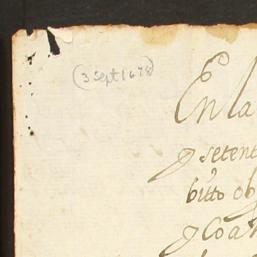 (3 Sept 1678)
En la
y setent
bitto ob
y Coa